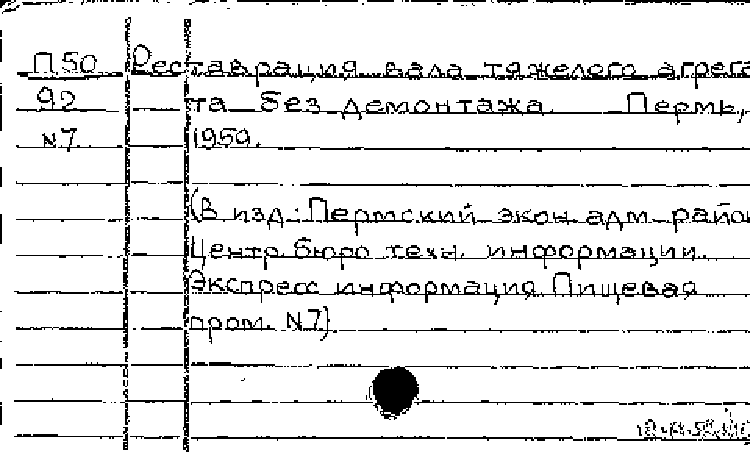 П50 Реставрация вала тяжелого агрега
92 та без демонтажа. Пермь,
N7. 1959.
(В изд: Пермский экон. адм. район
Центр. бюро техн. информации.
Экспресс информация. Пищевая
пром. N7).